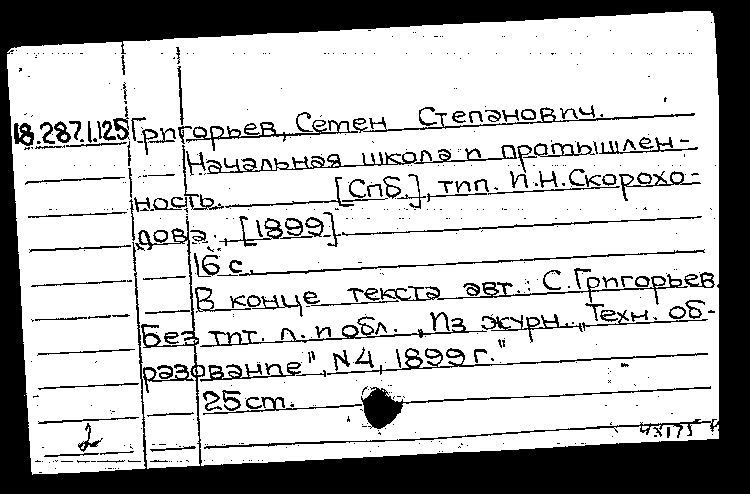 18.287.1.125 Григорьев, Семен Степанович.
Начальная школа и промышлен-
ность. [Спб.], тип. И.Н.Скорохо-
дова, [1899].
16 с.
В конце текста авт.: С.Григорьев.
Без тит. л. и обл. „Из журн. „Техн. об-
разование", N4, 1899 г."
25 cm.
2